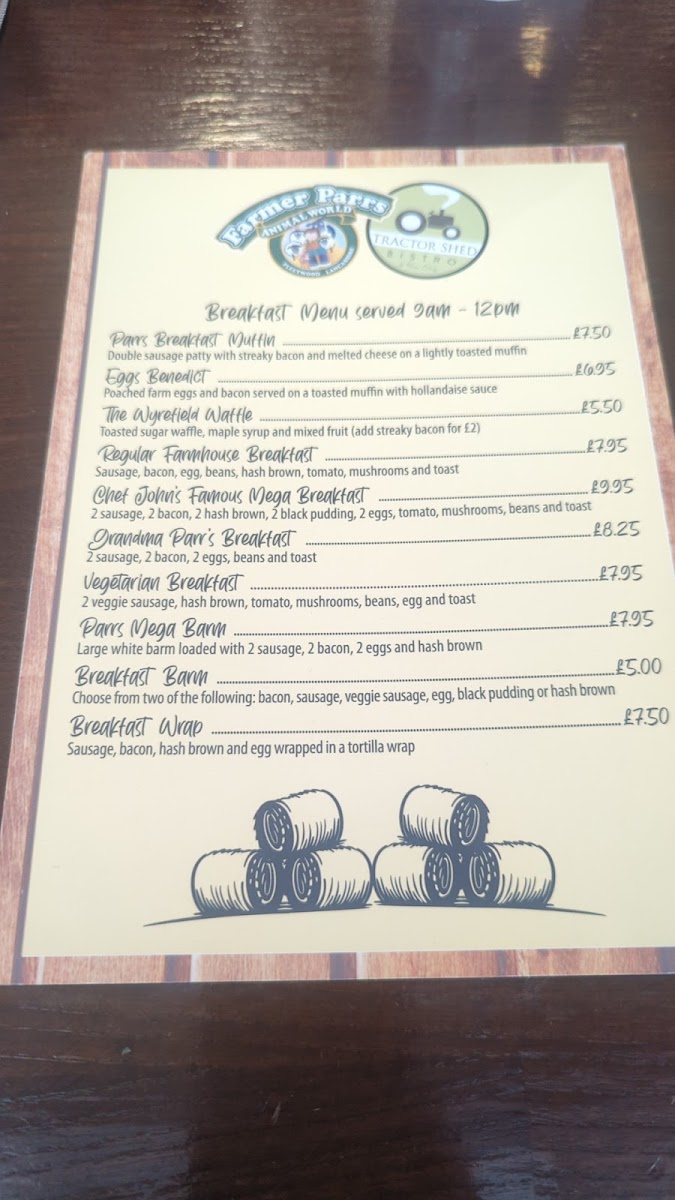 Farmer Parrs
ANIMAL WORLD
FLEETWOOD LANCASHIRE
TRACTOR SHED
BISTRO
Breakfast Menu served 9am - 12pm
Parrs Breakfast Muffin £7.50
Double sausage patty with streaky bacon and melted cheese on a lightly toasted muffin
Eggs Benedict £6.95
Poached farm eggs and bacon served on a toasted muffin with hollandaise sauce
The Wyrefield Waffle £5.50
Toasted sugar waffle, maple syrup and mixed fruit (add streaky bacon for £2)
Regular Farmhouse Breakfast £7.95
Sausage, bacon, egg, beans, hash brown, tomato, mushrooms and toast
Chef John's Famous Mega Breakfast £9.95
2 sausage, 2 bacon, 2 hash brown, 2 black pudding, 2 eggs, tomato, mushrooms, beans and toast
Grandma Parr's Breakfast £8.25
2 sausage, 2 bacon, 2 eggs, beans and toast
Vegetarian Breakfast £7.95
2 veggie sausage, hash brown, tomato, mushrooms, beans, egg and toast
Parrs Mega Barm £7.95
Large white barm loaded with 2 sausage, 2 bacon, 2 eggs and hash brown
Breakfast Barm £5.00
Choose from two of the following: bacon, sausage, veggie sausage, egg, black pudding or hash brown
Breakfast Wrap £7.50
Sausage, bacon, hash brown and egg wrapped in a tortilla wrap